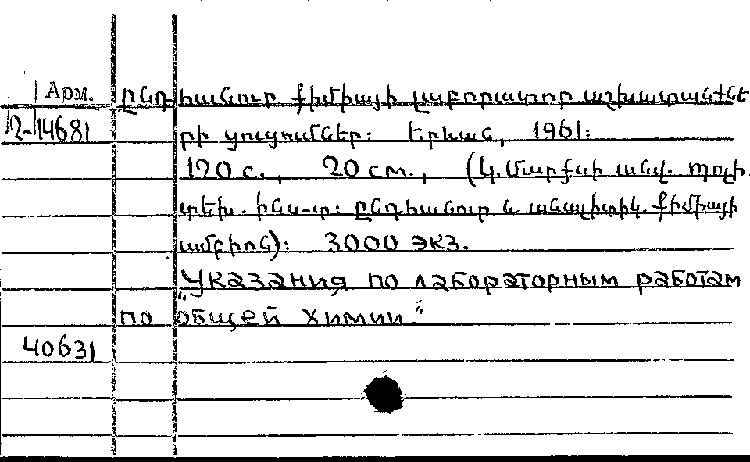 Арм. ընդհանուր քիմիայի լաբորատոր աշխատանքնե
2-14681 րի ցուցումներ: Երևան, 1961:
120 с., 20 см., (Կ. Մարքսի անվ. պոլի.
տեխ. ինս-տ: ընդհանուր և անալիտիկ. քիմիայի
ամբիոն): 3000 экз.
"Указания по лабораторным работам
по общей химии."
40631